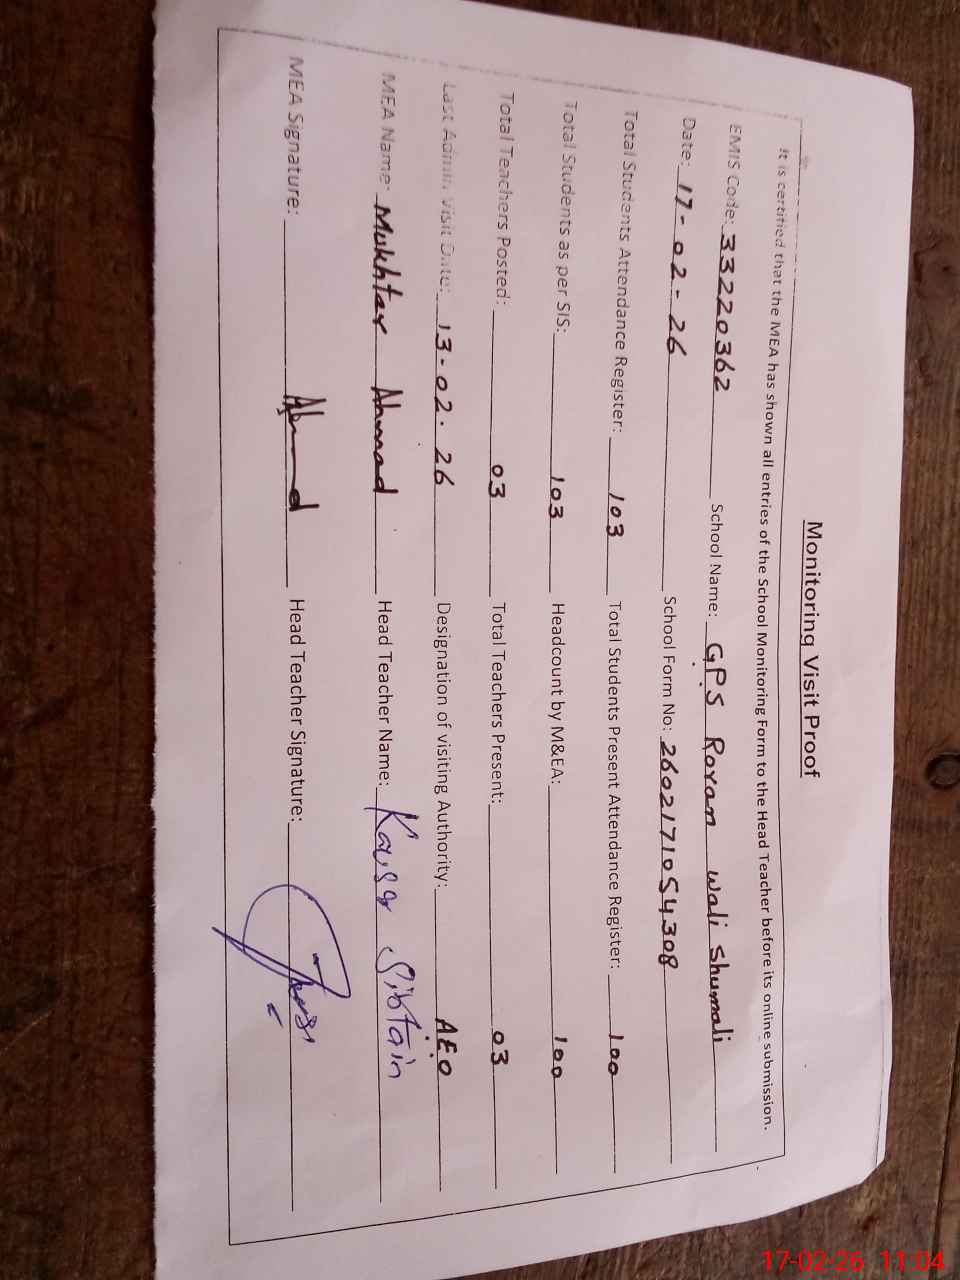 Monitoring Visit Proof
It is certified that the MEA has shown all entries of the School Monitoring Form to the Head Teacher before its online submission.
EMIS Code: 33220362 School Name: GPS Roran wali Shumali
Date: 17-02-26 School Form No: 2602171054308
Total Students Attendance Register: 103 Total Students Present Attendance Register: 100
Total Students as per SIS: 103 Headcount by M&EA: 100
Total Teachers Posted: 03 Total Teachers Present: 03
Last Admin Visit Date: 13.02.26 Designation of visiting Authority: AEO
MEA Name: Mukhtar Ahmad Head Teacher Name: Sibtain
MEA Signature: Head Teacher Signature:
17-02-26 11:04